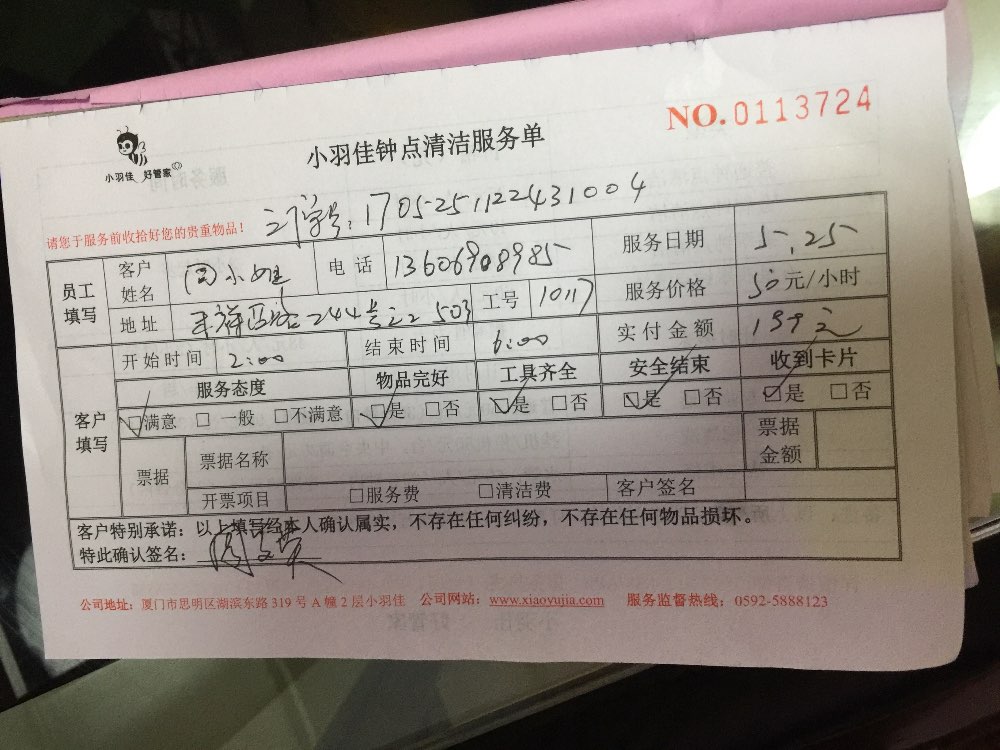 NO.0113724
小羽佳 好管家
小羽佳钟点清洁服务单
请您于服务前收拾好您的贵重物品！ 订单号：1705251122431004
员工填写 客户姓名 周小姐 电话 13606908985 服务日期 5.25
地址 244号之2 503 工号 1017 服务价格 50元/小时
客户填写 开始时间 2:00 结束时间 6:00 实付金额 199元
服务态度 物品完好 工具齐全 安全结束 收到卡片
☑满意 □一般 □不满意 ☑是 □否 ☑是 □否 ☑是 □否 ☑是 □否
票据 票据名称 票据金额
开票项目 □服务费 □清洁费 客户签名
客户特别承诺：以上填写经本人确认属实，不存在任何纠纷，不存在任何物品损坏。
特此确认签名：
公司地址：厦门市思明区湖滨东路319号A幢2层小羽佳 公司网站：www.xiaoyujia.com 服务监督热线：0592-5888123